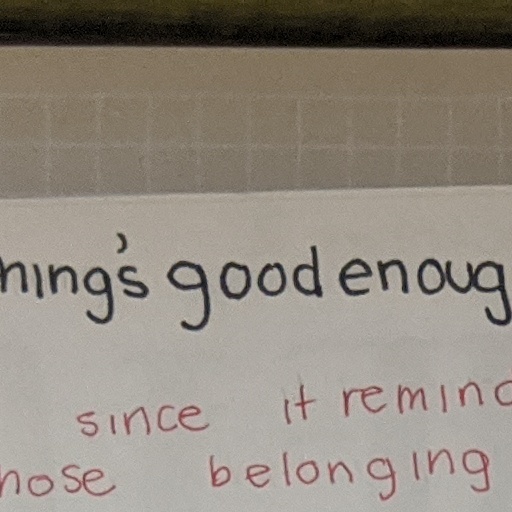 hing's good enoug
since it remind
hose belonging